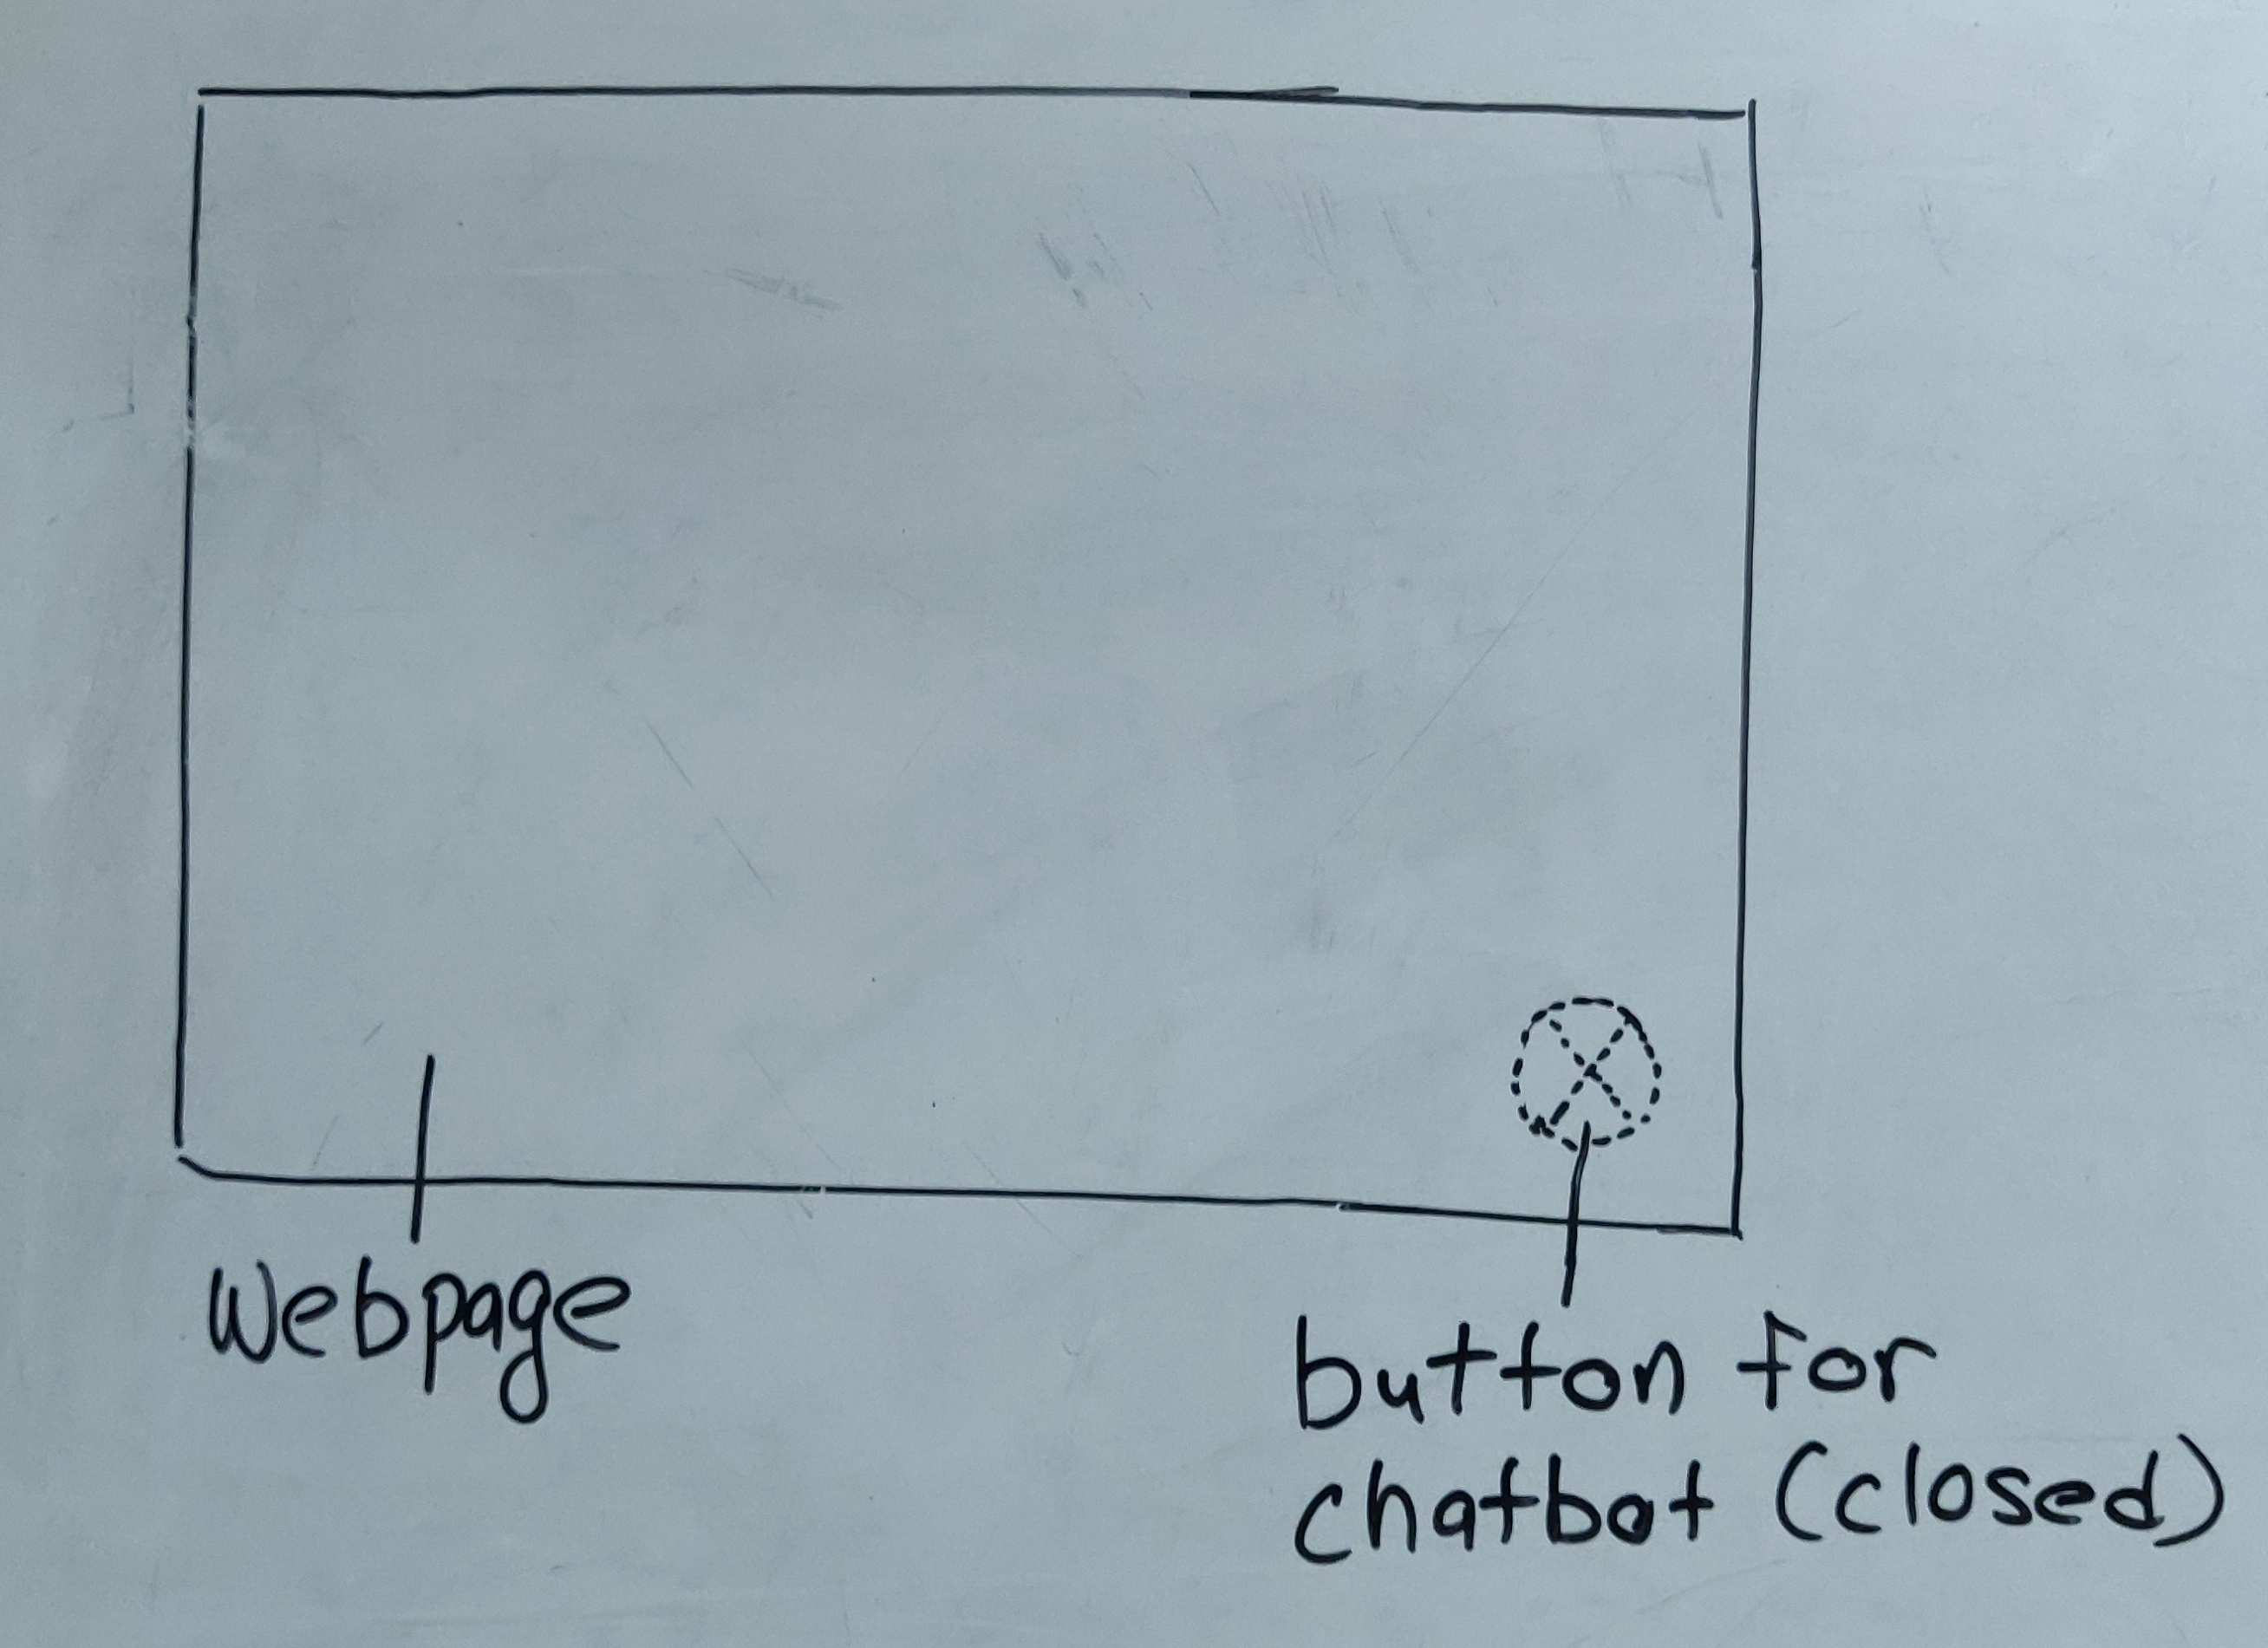 Webpage
button for
chatbot (closed)